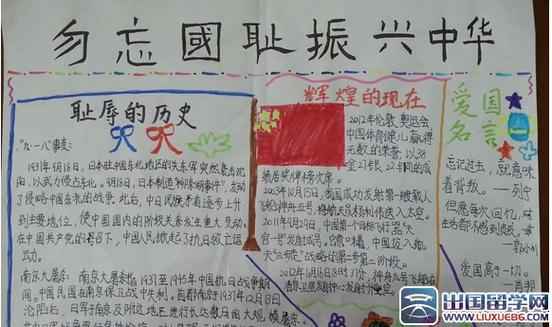 勿忘國耻振兴中华
耻辱的历史
"九·一八"事变:
1931年9月18日,日本驻中国东北地区的关东军突然袭击沈
阳,以武力侵占东北。
了侵略中国东北的战争。此后,中日民族矛盾逐步上升
到主要地位,使中国国内的阶级关系发生重大变动。
在中国共产党的号召下,中国人民掀起了抗日救亡运
动。
南京大屠杀:南京大屠杀指1937至1945年中国抗日战争期
间,中国民国在南京保卫战中失利,首都南京于1937年12月13日
沦陷后,日军于南京及附近地区进行长达数月的大规模屠杀
辉煌的现在
2012年伦敦奥运会
中国体育健儿赢得
无数的荣誉,以38
金27银、22铜的成
2003年10月15日,我国成功发射第一艘载人
飞船神舟五号,
2011年9月29日,中国第一个目标飞行器天
宫一号发射成功,
爱国
名言
忘记过去,就意味
着背叛。——列宁
但愿每次回忆,对
生活都不感到负疚
——郭小川
爱国高于一切。
——肖邦
出国留学网
WWW.LIUXUE86.COM